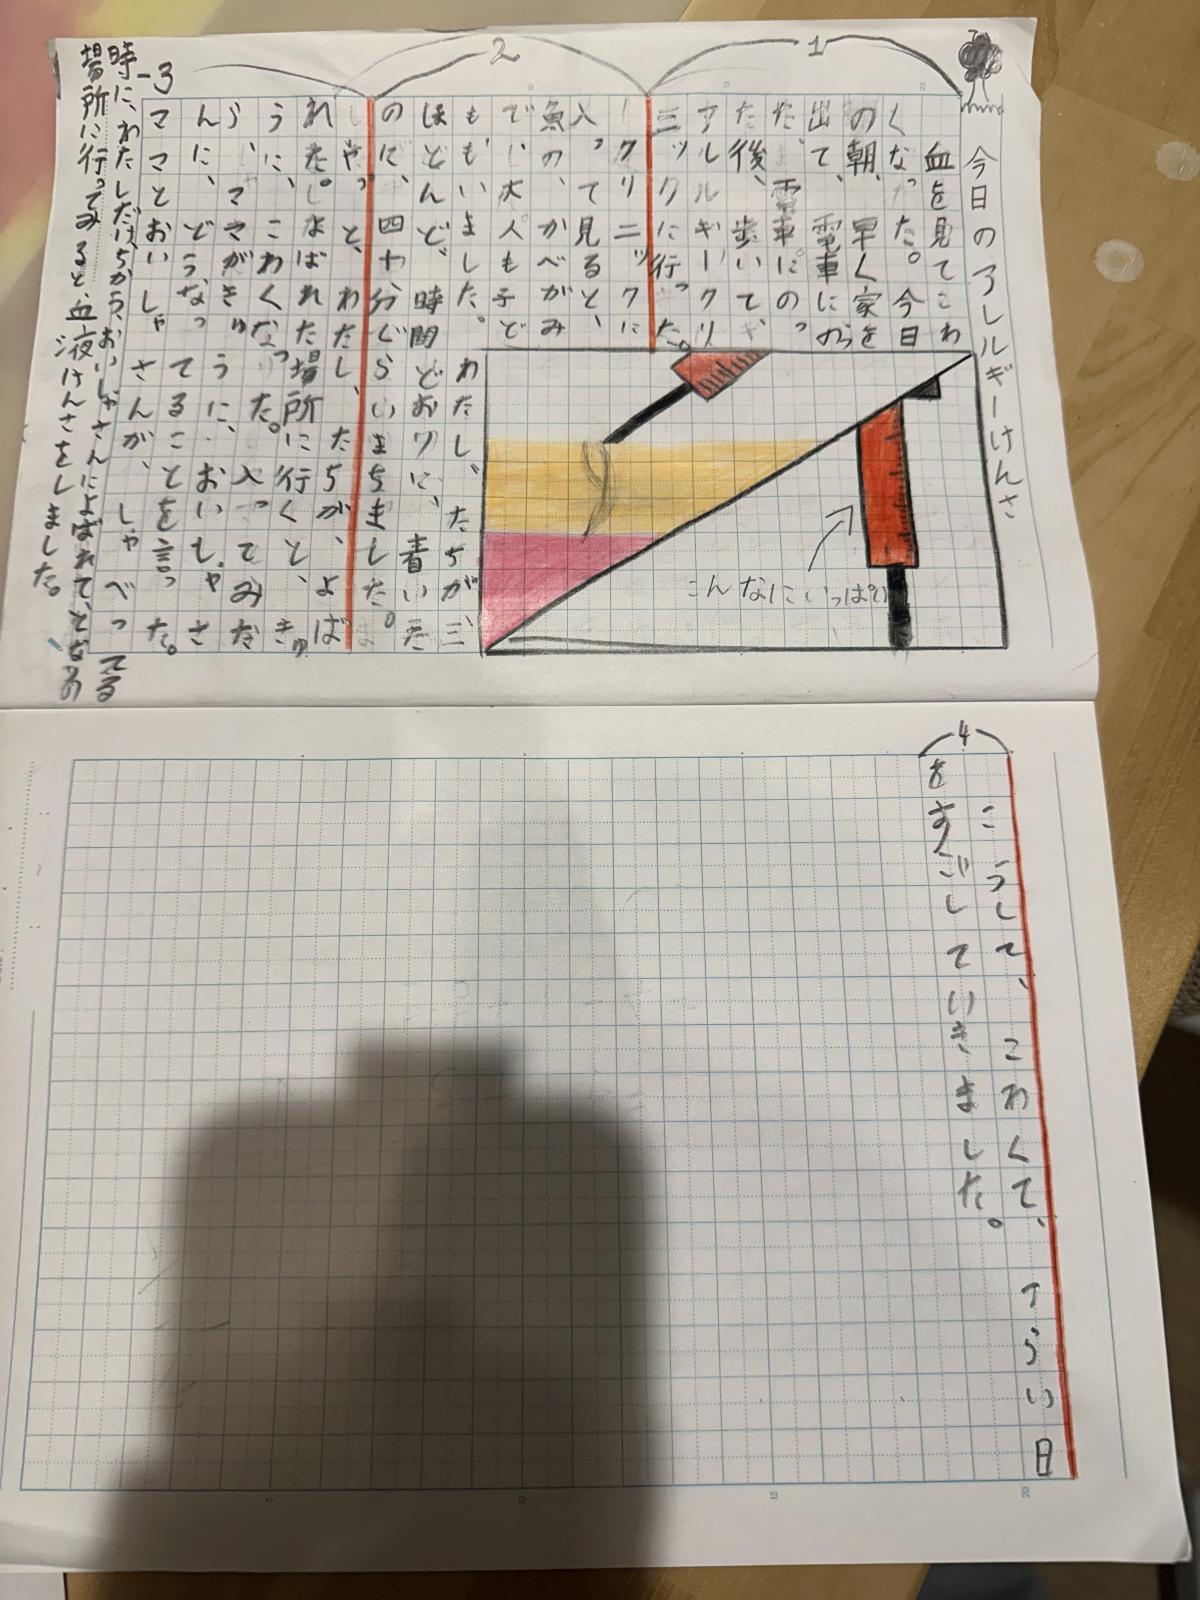 今日のアレルギーけんさ
1
血を見てこわ
くなった。今日
の朝、早く家を
出て、電車にの
た、電車にのっ
た後、歩いて、
アルルギークリ
ニックに行った。
クリニックに
入って見ると、
魚の、かべがみ
で、大人も子ど
もいました。
わたしたちが、三
ほとんど、時間どおりに、着いた
2
のに、四十分ぐらいまちました。
やっと、わたし、たちが、よば
れた。よばれた場所に行くと、きゅ
うに、こわくなった。入ってみた
ら、ママがきゅうに、おいしゃさ
んに、どうなってることを言った。
3
ママとおいしゃさんが、しゃべってる
時に、わたしだけ、ちがう、おいしゃさんによばれて、となりの
場所に行ってみると、血液けんさをしました。
こんなにいっぱい
4
こうして、こわくて、つらい日
をすごしていきました。
5
10
15
20